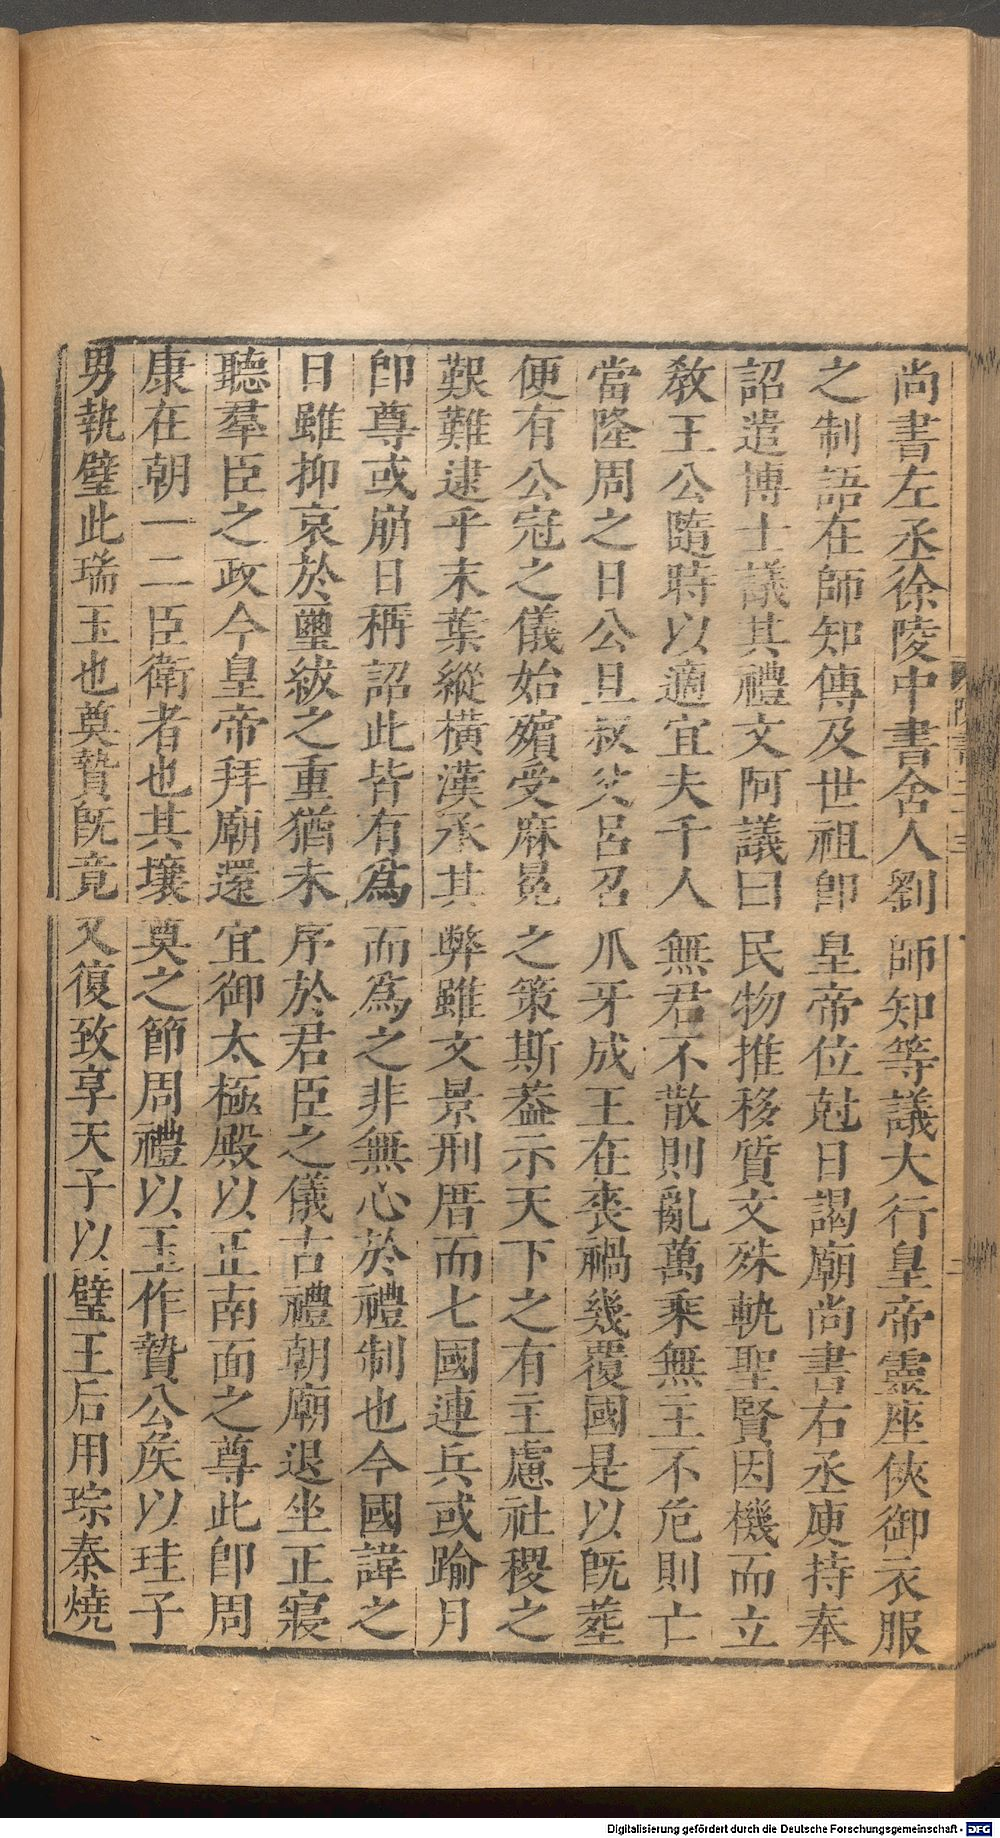 尚書左丞徐陵中書舍人劉師知等議大行皇帝靈座俠御衣服
之制語在師知傳及世祖卽皇帝位尅日謁廟尚書右丞庾持奉
詔遣博士議其禮文阿議曰民物推移質文殊軌聖賢因機而立
敎王公隨時以適宜夫千人無君不散則亂萬乘無主不危則亡
當隆周之日公旦叔父呂召爪牙成王在喪禍幾覆國是以旣葬
便有公冠之儀始殯受麻冕之策斯葢示天下之有主慮社稷之
艱難逮乎末葉縱橫漢承其弊雖文景刑厝而七國連兵或踰月
卽尊或崩日稱詔此皆有爲而爲之非無心於禮制也今國諱之
日雖抑哀於璽紱之重猶未序於君臣之儀古禮朝廟退坐正寢
聽羣臣之政今皇帝拜廟還宜御太極殿以正南面之尊此卽周
康在朝一二臣衛者也其壤奠之節周禮以玉作贄公矦以珪子
男執璧此瑞玉也奠贄旣竟又復致享天子以璧王后用琮秦燒
Digitalisierung gefördert durch die Deutsche Forschungsgemeinschaft - DFG